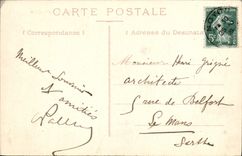 CARTE POSTALE
Correspondance
Adresse du Destinataire
Meilleur Souvenir
et amitiés
Monsieur Henri
architecte
rue de Belfort
Le Mans
Sarthe